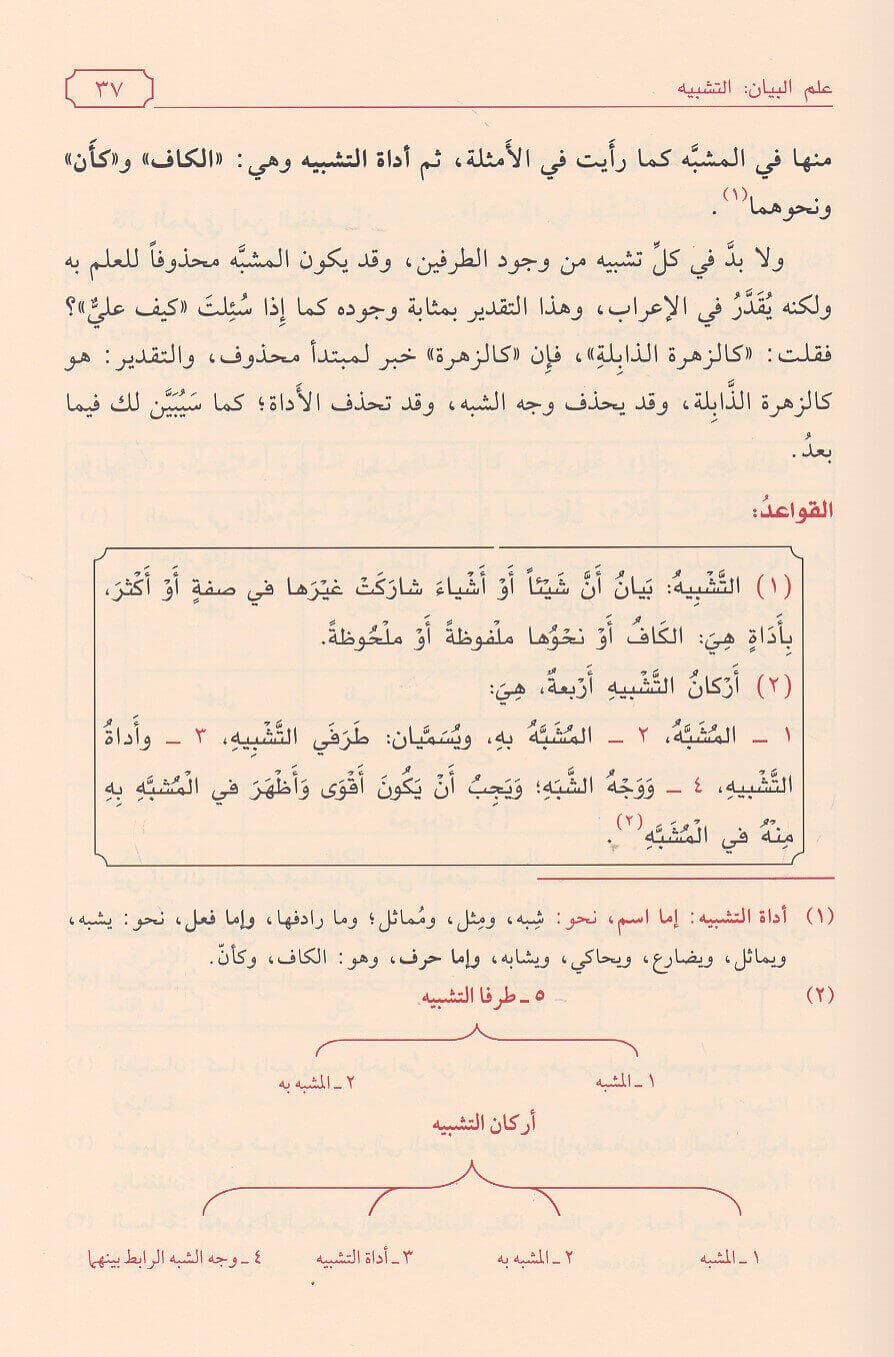 علم البيان: التشبيه
٣٧
منها في المشبَّه كما رأَيت في الأَمثلة، ثم أداة التشبيه وهي: «الكاف» و«كأَن»
ونحوهما(١).
ولا بدَّ في كلِّ تشبيه من وجود الطرفين، وقد يكون المشبَّه محذوفاً للعلم به
ولكنه يُقَدَّرُ في الإعراب، وهذا التقدير بمثابة وجوده كما إِذا سُئِلتَ «كيف عليٌّ»؟
فقلت: «كالزهرة الذابِلةِ»، فإِن «كالزهرة» خبر لمبتدأ محذوف، والتقدير: هو
كالزهرة الذَّابِلة، وقد يحذف وجه الشبه، وقد تحذف الأَداة؛ كما سَيُبَيَّن لك فيما
بعدُ.
القواعدُ:
(١) التَّشْبِيهُ: بَيانُ أَنَّ شَيْئاً أَوْ أَشْياءَ شارَكَتْ غيْرَها في صفةٍ أَوْ أَكْثرَ،
بِأَداةٍ هِيَ: الكَافُ أَوْ نحْوُها ملْفوظةً أَوْ ملْحُوظةً.
(٢) أَرْكانُ التَّشْبيهِ أَرْبعةٌ، هِيَ:
١ ـ المُشَبَّهُ، ٢ ـ المُشَبَّهُ بهِ، ويُسَمَّيان: طَرَفَي التَّشْبِيهِ، ٣ ـ وأَداةُ
التَّشْبيهِ، ٤ ـ وَوَجْهُ الشَّبَهِ؛ ويَجِبُ أَنْ يَكُونَ أَقْوَى وَأَظْهَرَ في الْمُشبَّهِ بِهِ
مِنْهُ في الْمُشَبَّهِ(٢).
(١) أداة التشبيه: إما اسم، نحو: شِبه، ومِثل، ومُماثل؛ وما رادفها، وإما فعل، نحو: يشبه،
ويماثل، ويضارع، ويحاكي، ويشابه، وإما حرف، وهو: الكاف، وكأنّ.
(٢) ٥ ـ طرفا التشبيه
١ ـ المشبه ٢ ـ المشبه به
أركان التشبيه
١ ـ المشبه ٢ ـ المشبه به ٣ ـ أداة التشبيه ٤ ـ وجه الشبه الرابط بينهما